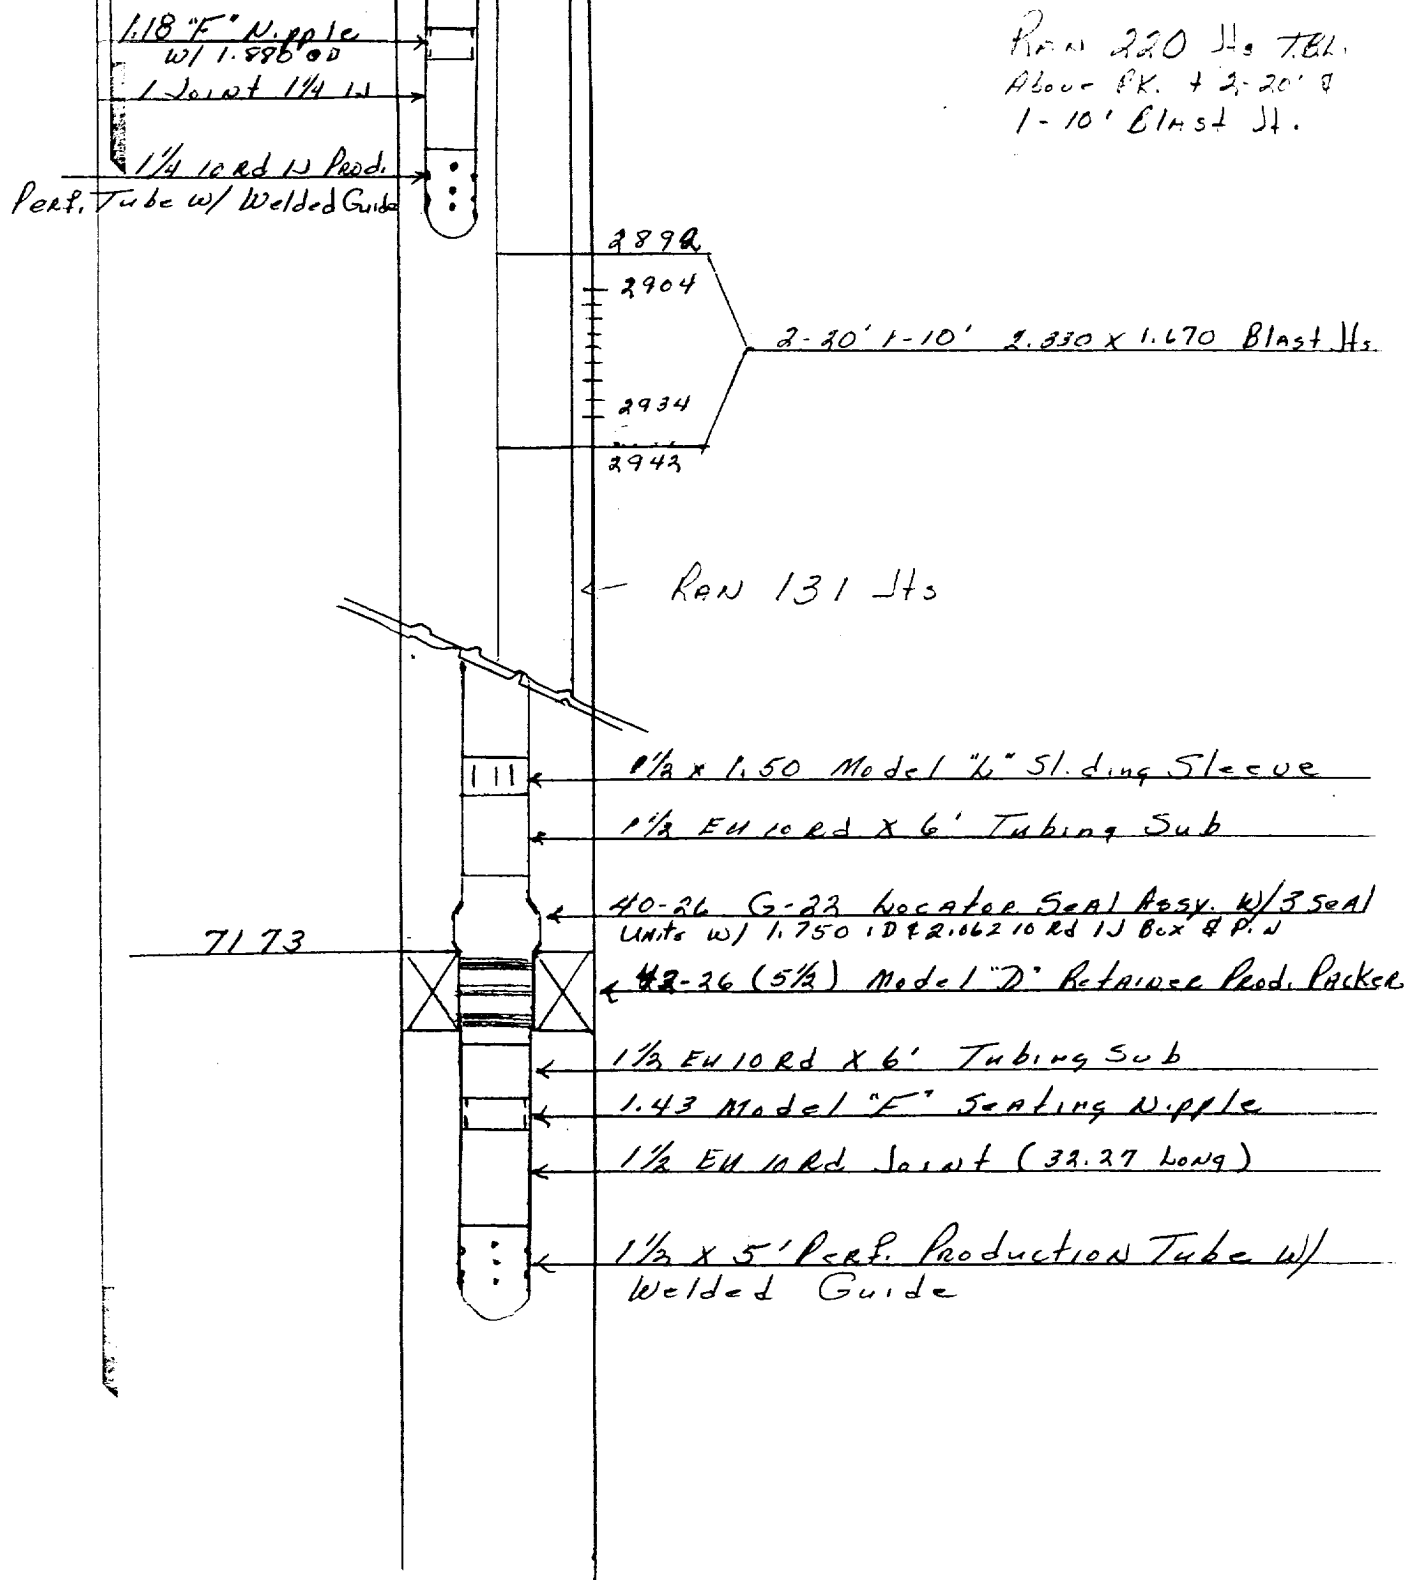 1.18 "F" Nipple
w/ 1.880 OD
1 Joint 1¼ IJ
1¼ 10 Rd IJ Prod.
Perf. Tube w/ Welded Guide
Ran 220 Jts TBG.
Above PK. + 2-20' &
1-10' Blast Jt.
2892
2904
2-20' 1-10' 2.330 x 1.670 Blast Jts.
2934
2942
Ran 131 Jts
1½ x 1.50 Model "L" Sliding Sleeve
1½ EU 10 Rd x 6' Tubing Sub
40-26 G-22 Locator Seal Assy. w/3 Seal
Units w/ 1.750 ID & 2.062 10 Rd IJ Box & Pin
7173
42-26 (5½) Model "D" Retainer Prod. Packer
1½ EU 10 Rd x 6' Tubing Sub
1.43 Model "F" Seating Nipple
1½ EU 10 Rd Joint (32.27 Long)
1½ x 5' Perf. Production Tube w/
Welded Guide